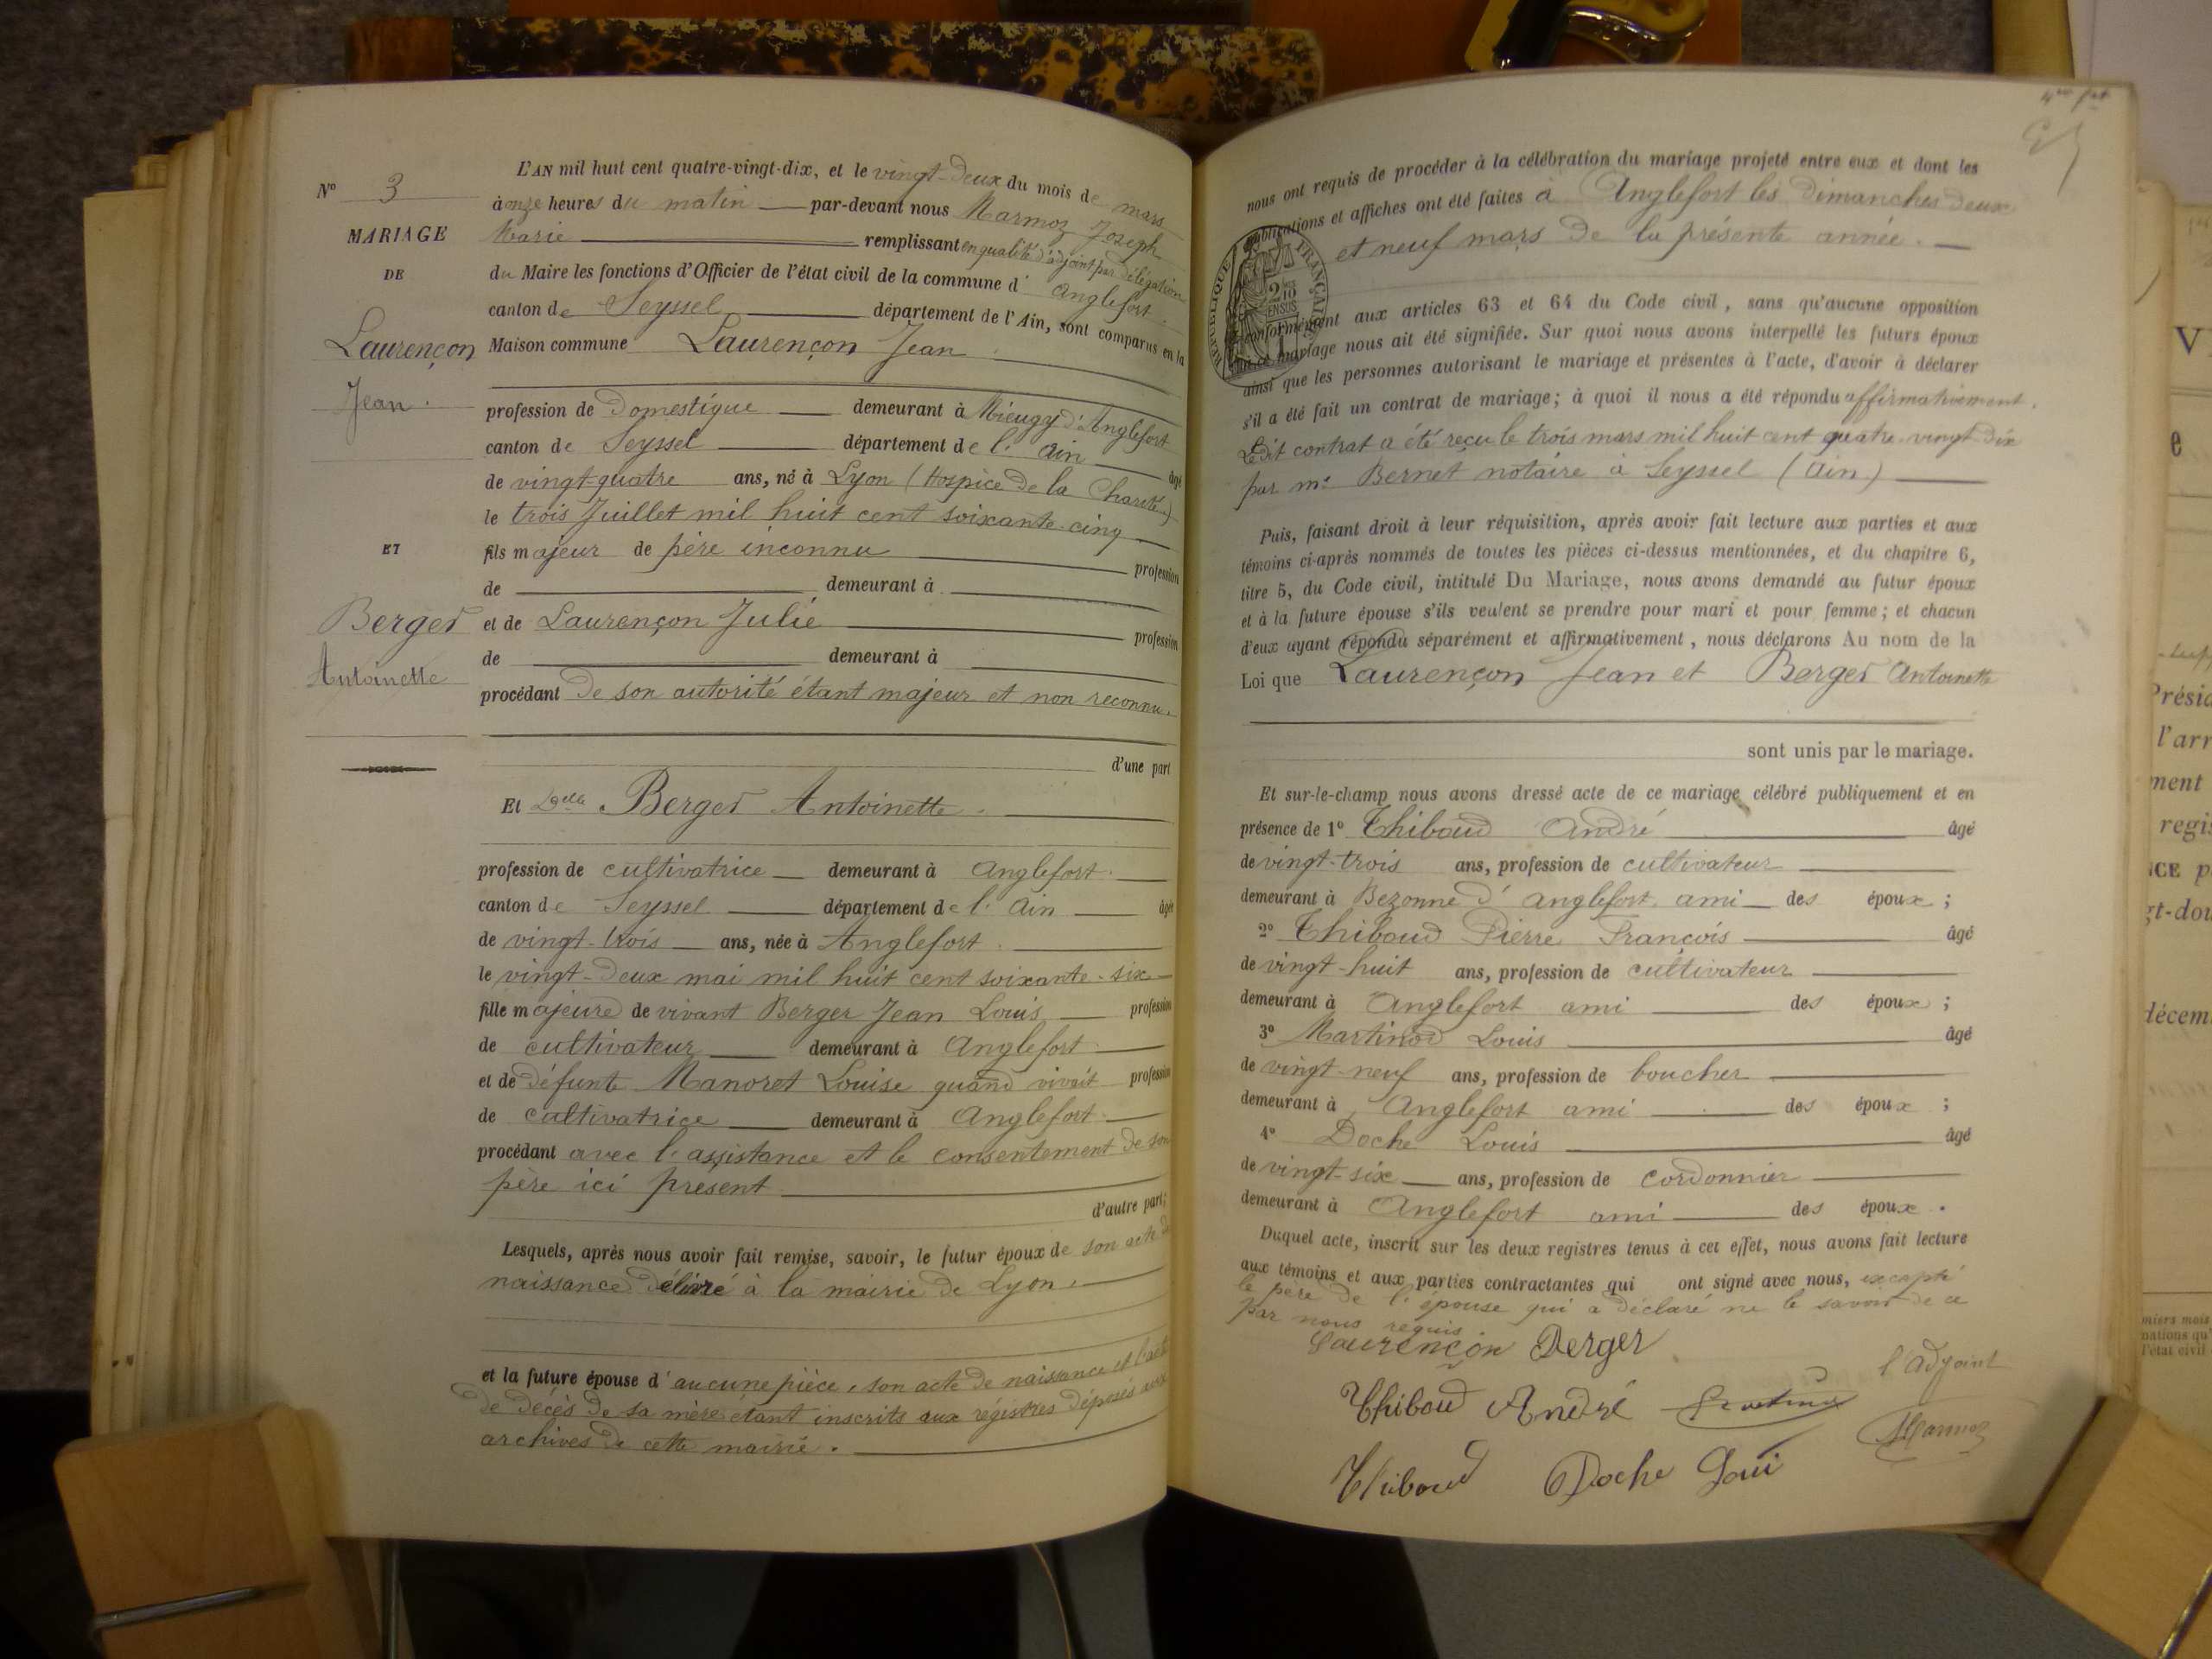 N° 3
MARIAGE
DE
Laurençon
Jean.
ET
Berger
Antoinette
L'AN mil huit cent quatre-vingt-dix, et le vingt-deux du mois de mars
à onze heures du matin par-devant nous Marmoz Joseph
Marie remplissant en qualité d'adjoint par délégation
du Maire les fonctions d'Officier de l'état civil de la commune d'Anglefort.
canton de Seyssel département de l'Ain, sont comparus en la
Maison commune Laurençon Jean
profession de Domestique demeurant à Mieugy d'Anglefort
canton de Seyssel département de l'Ain âgé
de vingt-quatre ans, né à Lyon (Hospice de la Charité)
le trois Juillet mil huit cent soixante-cinq
fils majeur de père inconnu profession
de demeurant à
et de Laurençon Julie profession
de demeurant à
procédant de son autorité étant majeur et non reconnu.
d'une part
Et Delle Berger Antoinette.
profession de cultivatrice demeurant à Anglefort.
canton de Seyssel département de l'Ain âgée
de vingt-trois ans, née à Anglefort.
le vingt-deux mai mil huit cent soixante-six
fille majeure de vivant Berger Jean Louis profession
de cultivateur demeurant à Anglefort
et de défunte Manoret Louise quand vivait profession
de cultivatrice demeurant à Anglefort.
procédant avec l'assistance et le consentement de son
père ici présent
d'autre part;
Lesquels, après nous avoir fait remise, savoir, le futur époux de son acte de
naissance délivré à la mairie de Lyon.
et la future épouse d'aucune pièce, son acte de naissance et l'acte
de décès de sa mère étant inscrits aux régistres déposés aux
archives de cette mairie.
nous ont requis de procéder à la célébration du mariage projeté entre eux et dont les
publications et affiches ont été faites à Anglefort les dimanches deux
et neuf mars de la présente année.
RÉPUBLIQUE FRANÇAISE
2/10 EN SUS
conformément aux articles 63 et 64 du Code civil, sans qu'aucune opposition
mariage nous ait été signifiée. Sur quoi nous avons interpellé les futurs époux
ainsi que les personnes autorisant le mariage et présentes à l'acte, d'avoir à déclarer
s'il a été fait un contrat de mariage; à quoi il nous a été répondu affirmativement.
Ledit contrat a été reçu le trois mars mil huit cent quatre-vingt-dix
par me Bernet notaire à Seyssel (Ain)
Puis, faisant droit à leur réquisition, après avoir fait lecture aux parties et aux
témoins ci-après nommés de toutes les pièces ci-dessus mentionnées, et du chapitre 6,
titre 5, du Code civil, intitulé Du Mariage, nous avons demandé au futur époux
et à la future épouse s'ils veulent se prendre pour mari et pour femme; et chacun
d'eux ayant répondu séparément et affirmativement, nous déclarons Au nom de la
Loi que Laurençon Jean et Berger Antoinette
sont unis par le mariage.
Et sur-le-champ nous avons dressé acte de ce mariage célébré publiquement et en
présence de 1° Thibaud André âgé
de vingt-trois ans, profession de cultivateur
demeurant à Bezonne d'Anglefort. ami des époux;
2° Thiboud Pierre François âgé
de vingt-huit ans, profession de cultivateur
demeurant à Anglefort ami des époux;
3° Martinod Louis âgé
de vingt-neuf ans, profession de boucher
demeurant à Anglefort ami des époux;
4° Doche Louis âgé
de vingt-six ans, profession de cordonnier
demeurant à Anglefort ami des époux.
Duquel acte, inscrit sur les deux registres tenus à cet effet, nous avons fait lecture
aux témoins et aux parties contractantes qui ont signé avec nous, excepté
le père de l'épouse qui a déclaré ne le savoir de ce
par nous requis.
Laurençon Berger
l'adjoint
Thiboud André
Marmoz
Thiboud Doche Loui